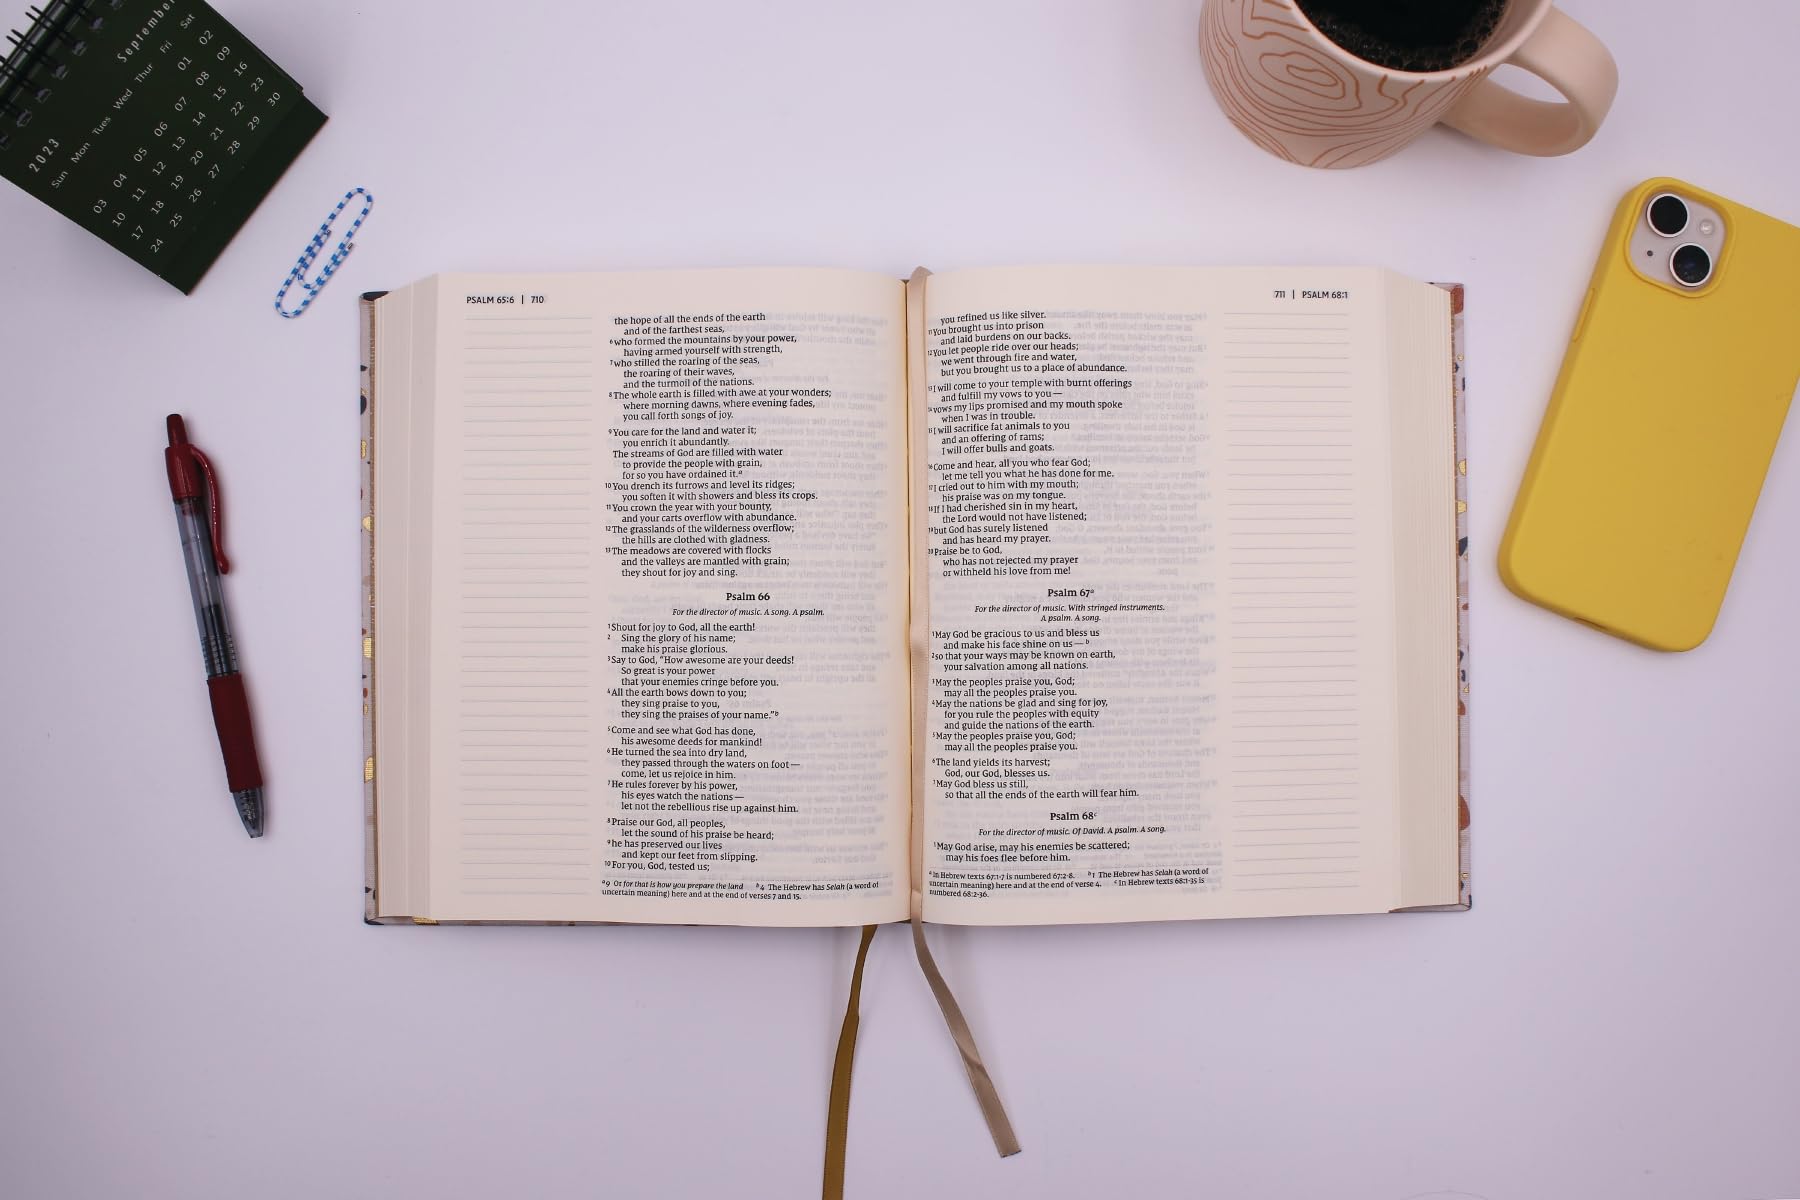 September
2023
Sun Mon Tues Wed Thur Fri Sat
01 02
03 04 05 06 07 08 09
10 11 12 13 14 15 16
17 18 19 20 21 22 23
24 25 26 27 28 29 30
PSALM 65:6 | 710
the hope of all the ends of the earth
and of the farthest seas,
6 who formed the mountains by your power,
having armed yourself with strength,
7 who stilled the roaring of the seas,
the roaring of their waves,
and the turmoil of the nations.
8 The whole earth is filled with awe at your wonders;
where morning dawns, where evening fades,
you call forth songs of joy.
9 You care for the land and water it;
you enrich it abundantly.
The streams of God are filled with water
to provide the people with grain,
for so you have ordained it.a
10 You drench its furrows and level its ridges;
you soften it with showers and bless its crops.
11 You crown the year with your bounty,
and your carts overflow with abundance.
12 The grasslands of the wilderness overflow;
the hills are clothed with gladness.
13 The meadows are covered with flocks
and the valleys are mantled with grain;
they shout for joy and sing.
Psalm 66
For the director of music. A song. A psalm.
1 Shout for joy to God, all the earth!
2 Sing the glory of his name;
make his praise glorious.
3 Say to God, “How awesome are your deeds!
So great is your power
that your enemies cringe before you.
4 All the earth bows down to you;
they sing praise to you,
they sing the praises of your name.”b
5 Come and see what God has done,
his awesome deeds for mankind!
6 He turned the sea into dry land,
they passed through the waters on foot—
come, let us rejoice in him.
7 He rules forever by his power,
his eyes watch the nations—
let not the rebellious rise up against him.
8 Praise our God, all peoples,
let the sound of his praise be heard;
9 he has preserved our lives
and kept our feet from slipping.
10 For you, God, tested us;
a 9 Or for that is how you prepare the land b 4 The Hebrew has Selah (a word of
uncertain meaning) here and at the end of verses 7 and 15.
711 | PSALM 68:1
you refined us like silver.
11 You brought us into prison
and laid burdens on our backs.
12 You let people ride over our heads;
we went through fire and water,
but you brought us to a place of abundance.
13 I will come to your temple with burnt offerings
and fulfill my vows to you—
14 vows my lips promised and my mouth spoke
when I was in trouble.
15 I will sacrifice fat animals to you
and an offering of rams;
I will offer bulls and goats.
16 Come and hear, all you who fear God;
let me tell you what he has done for me.
17 I cried out to him with my mouth;
his praise was on my tongue.
18 If I had cherished sin in my heart,
the Lord would not have listened;
19 but God has surely listened
and has heard my prayer.
20 Praise be to God,
who has not rejected my prayer
or withheld his love from me!
Psalm 67a
For the director of music. With stringed instruments.
A psalm. A song.
1 May God be gracious to us and bless us
and make his face shine on us—b
2 so that your ways may be known on earth,
your salvation among all nations.
3 May the peoples praise you, God;
may all the peoples praise you.
4 May the nations be glad and sing for joy,
for you rule the peoples with equity
and guide the nations of the earth.
5 May the peoples praise you, God;
may all the peoples praise you.
6 The land yields its harvest;
God, our God, blesses us.
7 May God bless us still,
so that all the ends of the earth will fear him.
Psalm 68c
For the director of music. Of David. A psalm. A song.
1 May God arise, may his enemies be scattered;
may his foes flee before him.
a In Hebrew texts 67:1-7 is numbered 67:2-8. b 1 The Hebrew has Selah (a word of
uncertain meaning) here and at the end of verse 4. c In Hebrew texts 68:1-35 is
numbered 68:2-36.